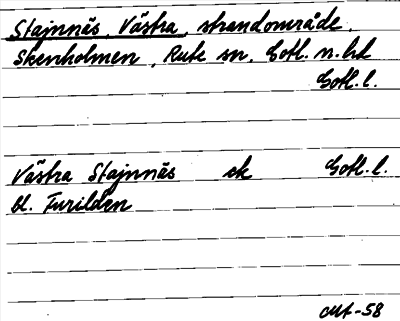 Stajnnäs, Västra, strandområde.
Skenholmen, Rute sn. Gotl. n. hd
Gotl. l.
Västra Stajnnäs ek Gotl. l.
bl. Furilden